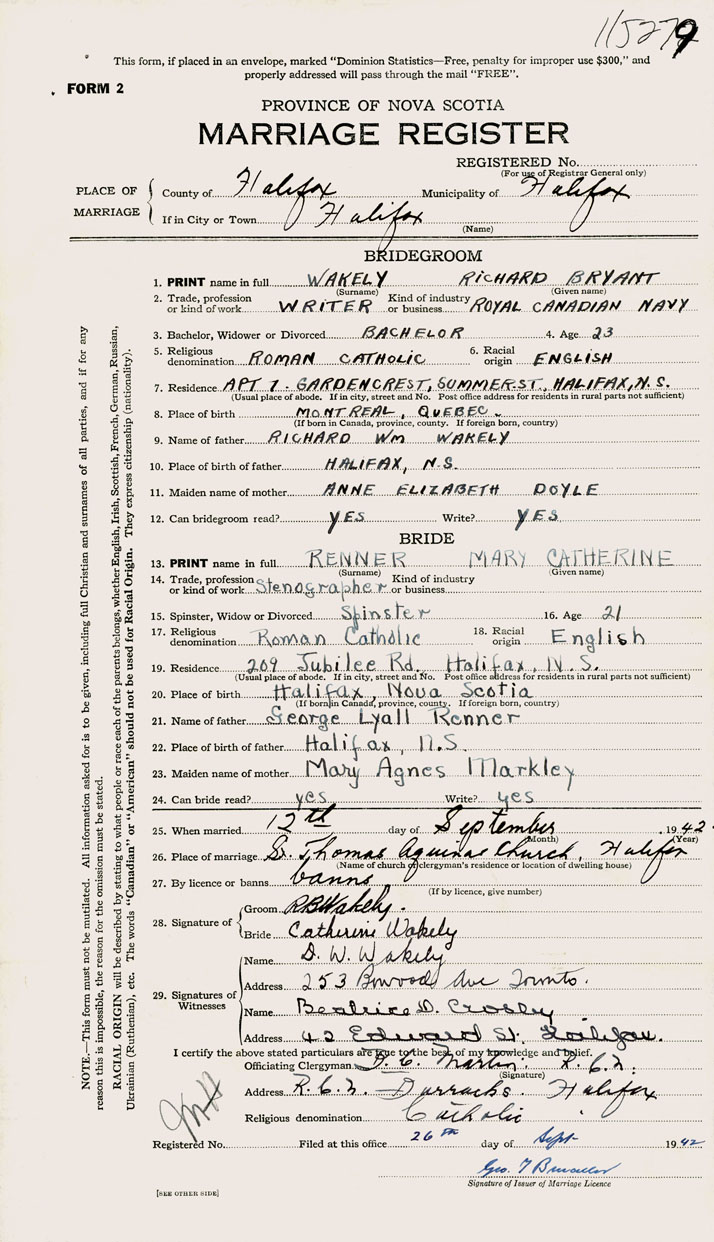 115279
This form, if placed in an envelope, marked "Dominion Statistics—Free, penalty for improper use $300," and
properly addressed will pass through the mail "FREE".
FORM 2
PROVINCE OF NOVA SCOTIA
MARRIAGE REGISTER
REGISTERED No.
(For use of Registrar General only)
PLACE OF MARRIAGE
County of Halifax Municipality of Halifax
If in City or Town Halifax
(Name)
BRIDEGROOM
1. PRINT name in full WAKELY RICHARD BRYANT
(Surname) (Given name)
2. Trade, profession or kind of work WRITER Kind of industry or business ROYAL CANADIAN NAVY
3. Bachelor, Widower or Divorced BACHELOR 4. Age 23
5. Religious denomination ROMAN CATHOLIC 6. Racial origin ENGLISH
7. Residence APT 7. GARDENCREST, SUMMER ST, HALIFAX, N.S.
(Usual place of abode. If in city, street and No. Post office address for residents in rural parts not sufficient)
8. Place of birth MONTREAL, QUEBEC.
(If born in Canada, province, county. If foreign born, country)
9. Name of father RICHARD WM WAKELY
10. Place of birth of father HALIFAX, N.S.
11. Maiden name of mother ANNE ELIZABETH DOYLE
12. Can bridegroom read? YES Write? YES
BRIDE
13. PRINT name in full RENNER MARY CATHERINE
(Surname) (Given name)
14. Trade, profession or kind of work Stenographer Kind of industry or business
15. Spinster, Widow or Divorced Spinster 16. Age 21
17. Religious denomination Roman Catholic 18. Racial origin English
19. Residence 209 Jubilee Rd. Halifax, N.S.
(Usual place of abode. If in city, street and No. Post office address for residents in rural parts not sufficient)
20. Place of birth Halifax, Nova Scotia
(If born in Canada, province, county. If foreign born, country)
21. Name of father George Lyall Renner
22. Place of birth of father Halifax, N.S.
23. Maiden name of mother Mary Agnes Markley
24. Can bride read? yes Write? yes
25. When married 12th day of September 1942
(Month) (Year)
26. Place of marriage St. Thomas Aquinas Church, Halifax
(Name of church or clergyman's residence or location of dwelling house)
27. By licence or banns banns
(If by licence, give number)
28. Signature of
Groom RBWakely.
Bride Catherine Wakely
29. Signatures of Witnesses
Name D. W. Wakely
Address 253 Bowood Ave Toronto.
Name Beatrice D. Crosby
Address 42 Edward St. Halifax.
I certify the above stated particulars are true to the best of my knowledge and belief.
Officiating Clergyman Martin.
(Signature)
Address Halifax
Religious denomination Catholic
Registered No. Filed at this office 26th day of Sept 1942
Geo. T
Signature of Issuer of Marriage Licence
[SEE OTHER SIDE]
NOTE.—This form must not be mutilated. All information asked for is to be given, including full Christian and surnames of all parties, and if for any
reason this is impossible, the reason for the omission must be stated.
RACIAL ORIGIN will be described by stating to what people or race each of the parents belongs, whether English, Irish, Scottish, French, German, Russian,
Ukrainian (Ruthenian), etc. The words "Canadian" or "American" should not be used for Racial Origin. They express citizenship (nationality).